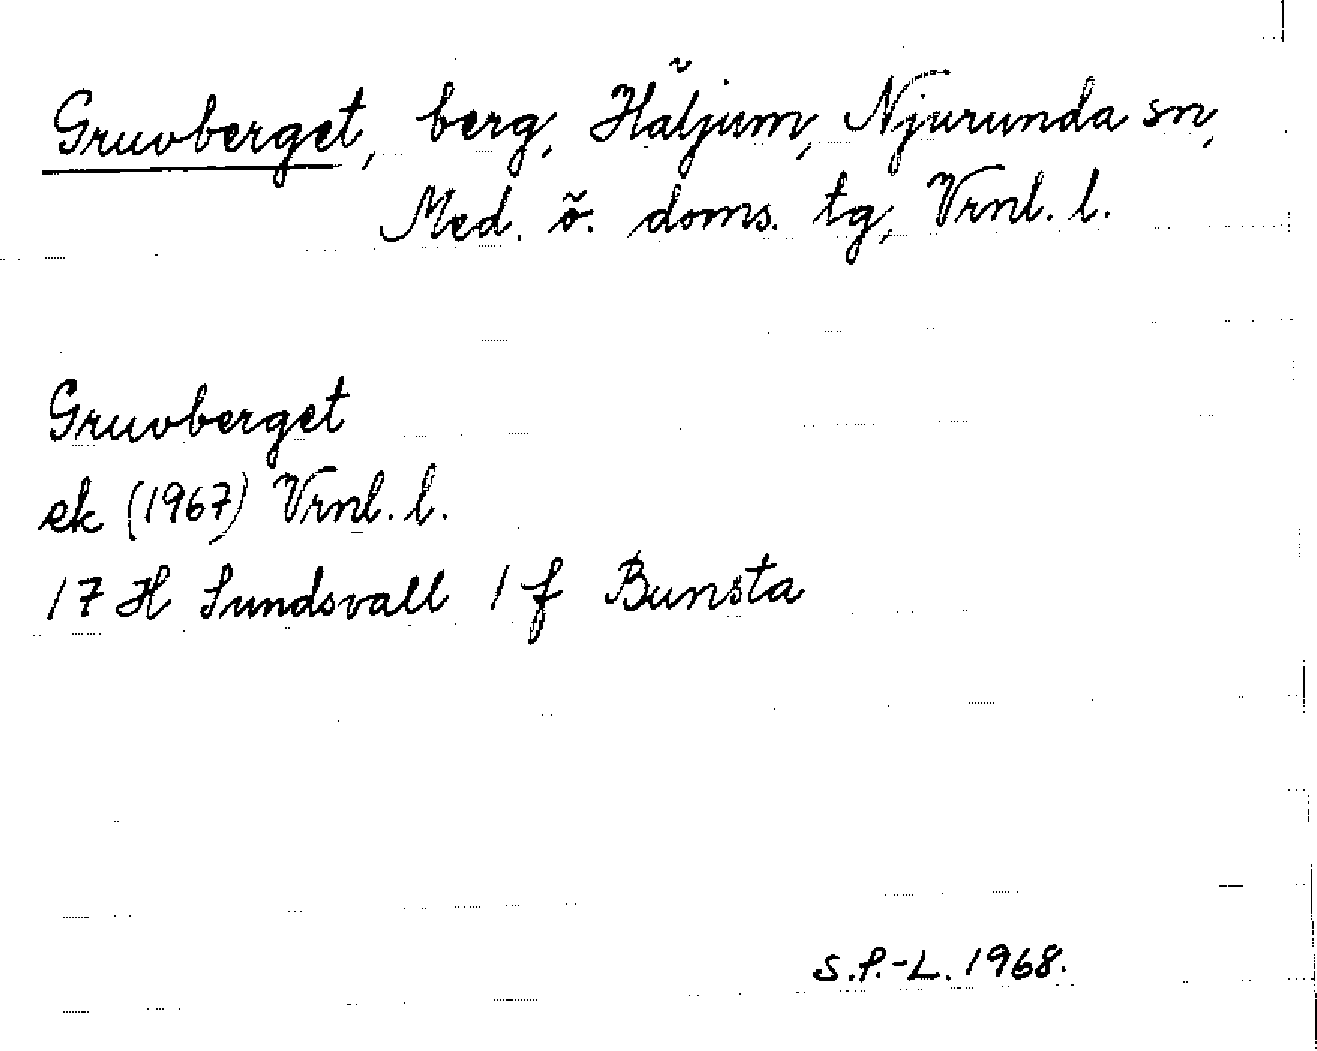 Gruvberget, berg, Häljum, Njurunda sn,
Med. ö. doms. tg, Vrnl. l.
Gruvberget
ek (1967) Vrnl. l.
17 H Sundsvall 1 f Bunsta
S.P.-L. 1968.